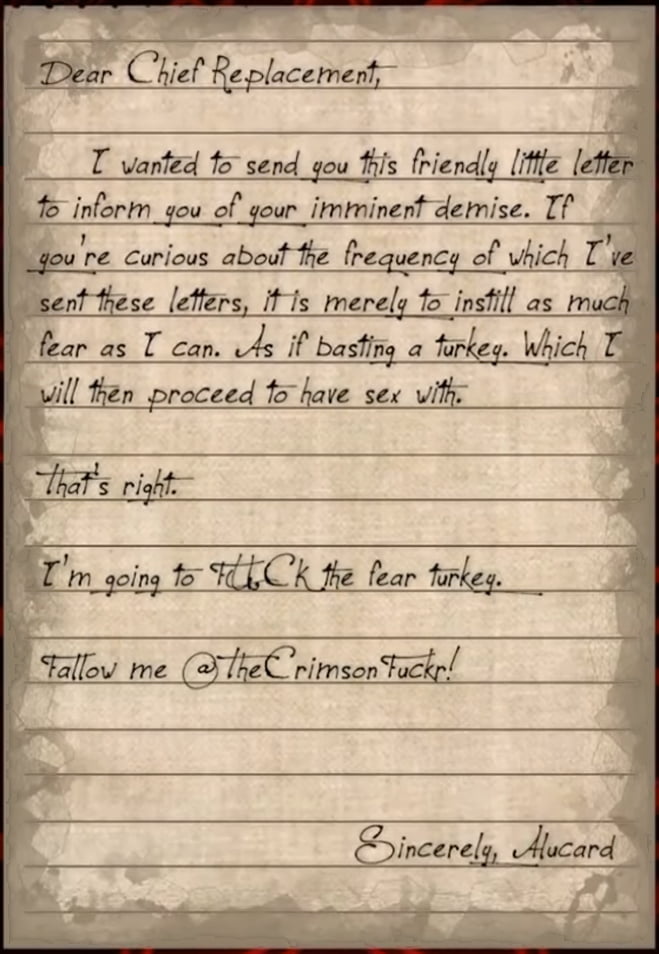 Dear Chief Replacement,
I wanted to send you this friendly little letter
to inform you of your imminent demise. If
you're curious about the frequency of which I've
sent these letters, it is merely to instill as much
fear as I can. As if basting a turkey. Which I
will then proceed to have sex with.
That's right.
I'm going to FUCK the fear turkey.
Follow me @TheCrimsonFuckr!
Sincerely, Alucard